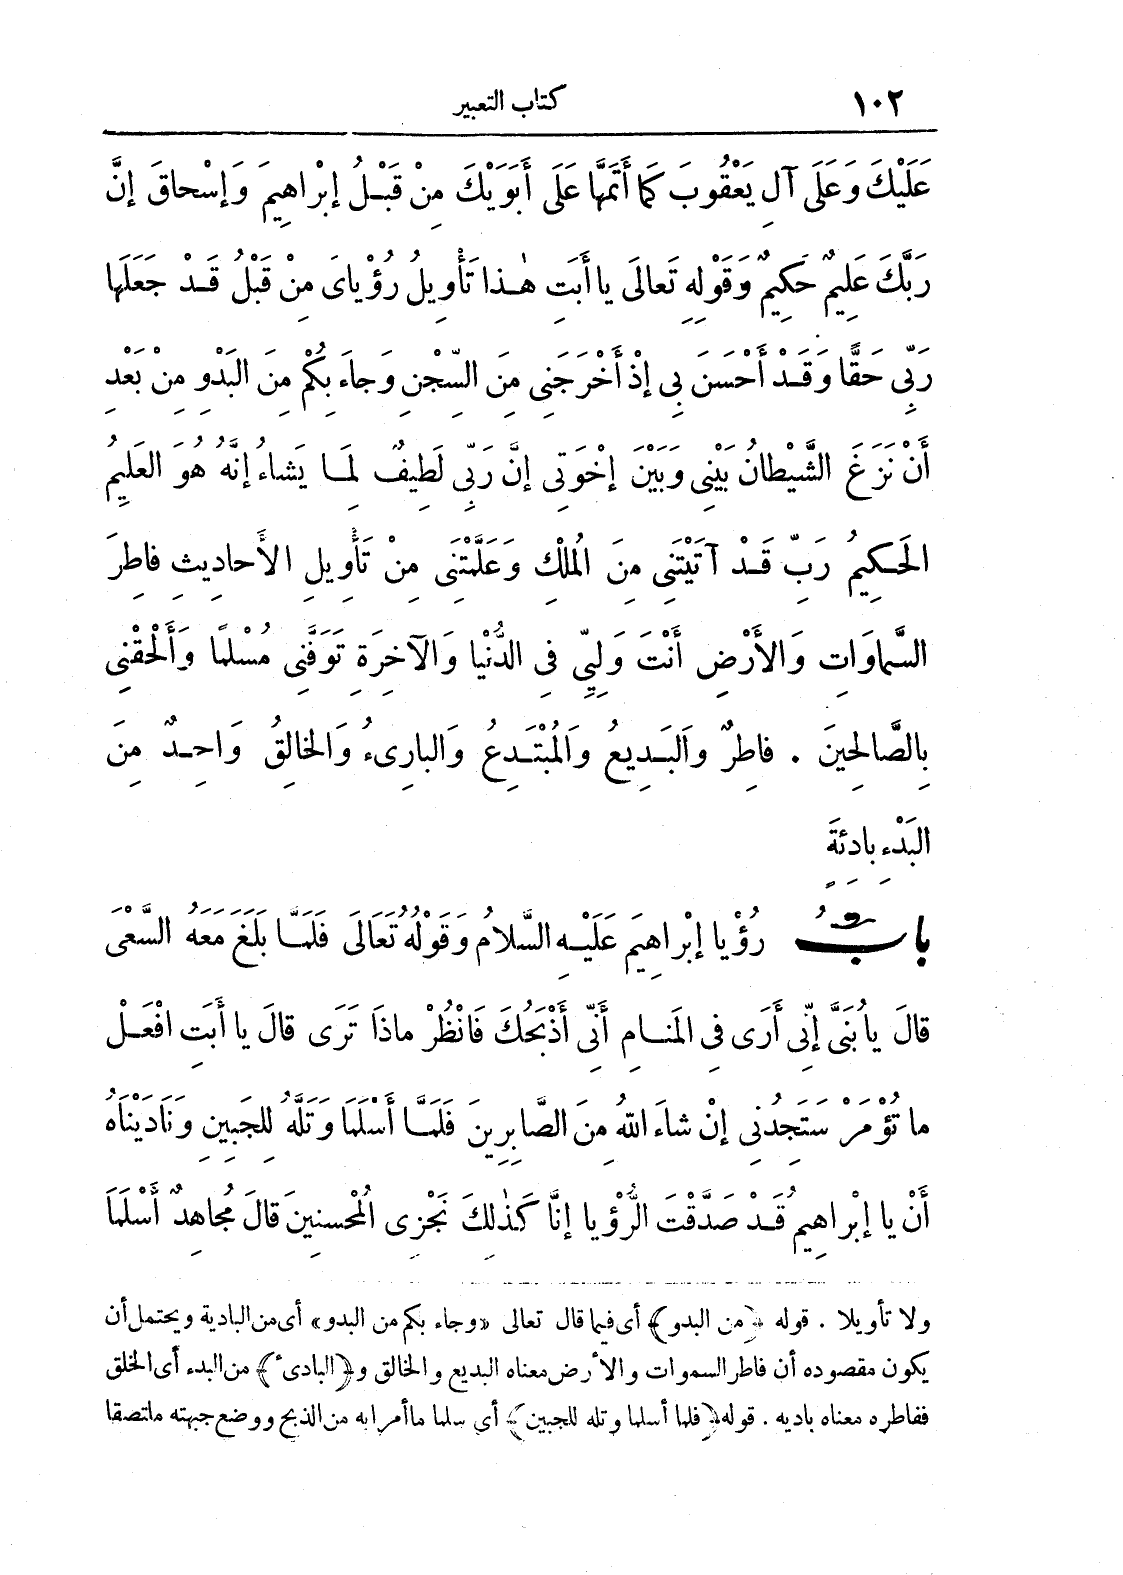 ١٠٢ كتاب التعبير
عَلَيْكَ وَعَلَى آلِ يَعْقُوبَ كَمَا أَتَمَّهَا عَلَى أَبَوَيْكَ مِنْ قَبْلُ إِبْرَاهِيمَ وَإِسْحَاقَ إِنَّ
رَبَّكَ عَلِيمٌ حَكِيمٌ وَقَوْلِهِ تَعَالَى يَا أَبَتِ هٰذَا تَأْوِيلُ رُؤْيَاىَ مِنْ قَبْلُ قَدْ جَعَلَهَا
رَبِّى حَقًّا وَقَدْ أَحْسَنَ بِى إِذْ أَخْرَجَنِى مِنَ السِّجْنِ وَجَاءَ بِكُمْ مِنَ البَدْوِ مِنْ بَعْدِ
أَنْ نَزَغَ الشَّيْطَانُ بَيْنِى وَبَيْنَ إِخْوَتِى إِنَّ رَبِّى لَطِيفٌ لِمَا يَشَاءُ إِنَّهُ هُوَ العَلِيمُ
الحَكِيمُ رَبِّ قَدْ آتَيْتَنِى مِنَ المُلْكِ وَعَلَّمْتَنِى مِنْ تَأْوِيلِ الأَحَادِيثِ فَاطِرَ
السَّمَاوَاتِ وَالأَرْضِ أَنْتَ وَلِيِّى فِى الدُّنْيَا وَالآخِرَةِ تَوَفَّنِى مُسْلِمًا وَأَلْحِقْنِى
بِالصَّالِحِينَ . فَاطِرٌ وَالبَدِيعُ وَالمُبْتَدِعُ وَالبَارِىءُ وَالخَالِقُ وَاحِدٌ مِنَ
البَدْءِ بَادِئَةٍ
بَابُ رُؤْيَا إِبْرَاهِيمَ عَلَيْهِ السَّلَامُ وَقَوْلُهُ تَعَالَى فَلَمَّا بَلَغَ مَعَهُ السَّعْىَ
قَالَ يَا بُنَىَّ إِنِّى أَرَى فِى المَنَامِ أَنِّى أَذْبَحُكَ فَانْظُرْ مَاذَا تَرَى قَالَ يَا أَبَتِ افْعَلْ
مَا تُؤْمَرُ سَتَجِدُنِى إِنْ شَاءَ اللهُ مِنَ الصَّابِرِينَ فَلَمَّا أَسْلَمَا وَتَلَّهُ لِلجَبِينِ وَنَادَيْنَاهُ
أَنْ يَا إِبْرَاهِيمُ قَدْ صَدَّقْتَ الرُّؤْيَا إِنَّا كَذٰلِكَ نَجْزِى المُحْسِنِينَ قَالَ مُجَاهِدٌ أَسْلَمَا
ولا تأويلا . قوله ﴿من البدو﴾ أى فيما قال تعالى «وجاء بكم من البدو» أى من البادية ويحتمل أن
يكون مقصوده أن فاطر السموات والأرض معناه البديع والخالق و﴿البادئ﴾ من البدء أى الخلق
ففاطره معناه باديه . قوله ﴿فلما أسلما وتله للجبين﴾ أى سلما ما أمرا به من الذبح ووضع جبهته ملتصقا